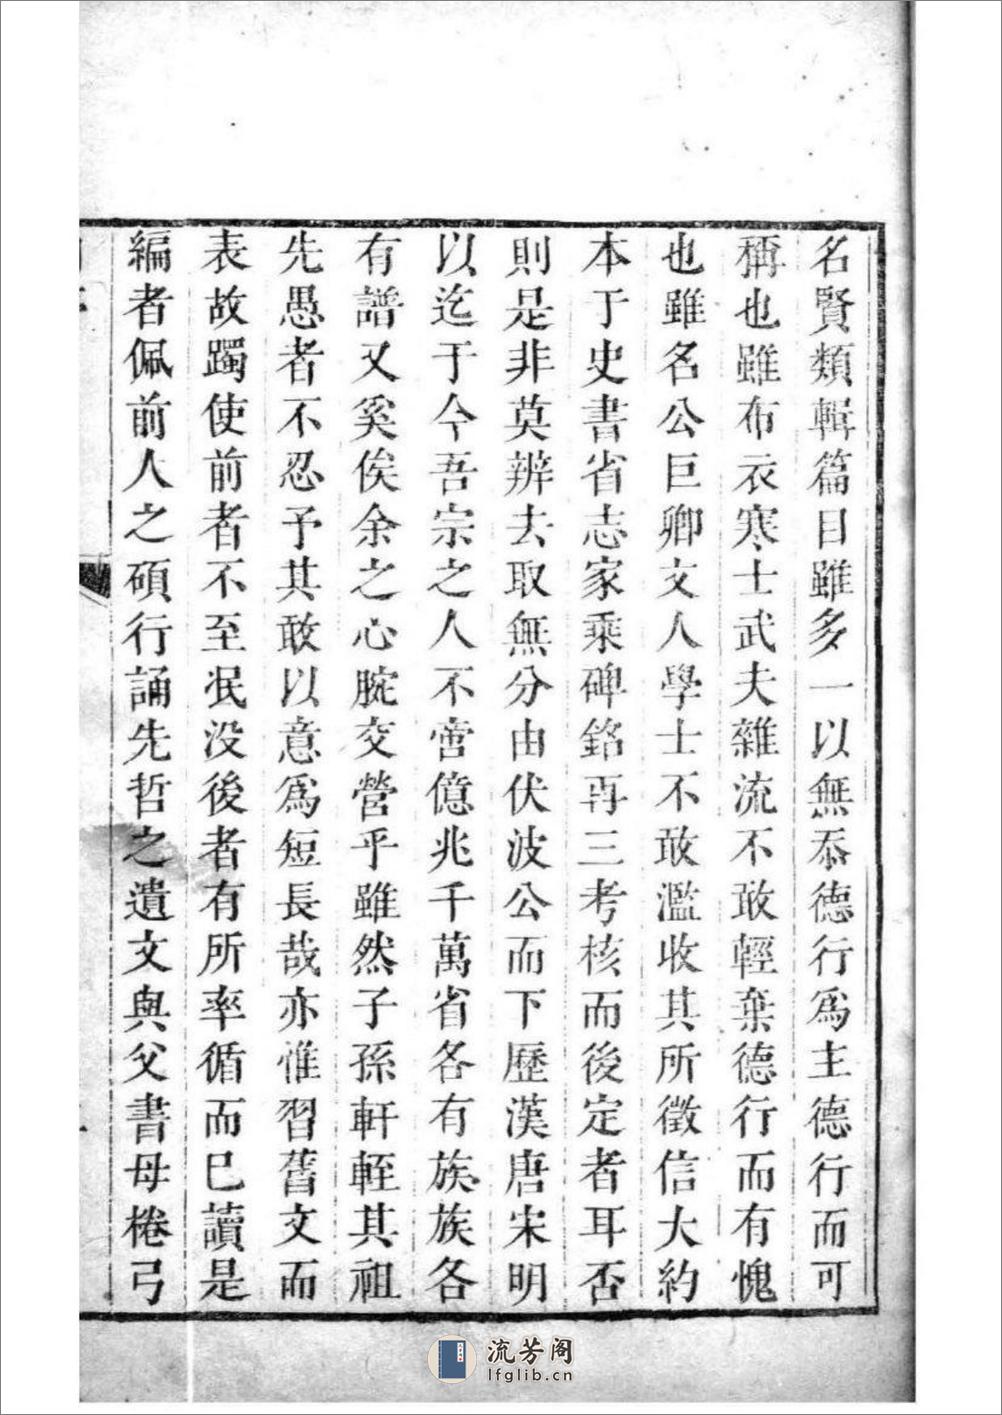 名賢類輯篇目雖多一以無忝德行爲主德行而可
稱也雖布衣寒士武夫雜流不敢輕棄德行而有愧
也雖名公巨卿文人學士不敢濫收其所徵信大約
本于史書省志家乘碑銘再三考核而後定者耳否
則是非莫辨去取無分由伏波公而下歷漢唐宋明
以迄于今吾宗之人不啻億兆千萬省各有族族各
有譜又奚俟余之心腕交營乎雖然子孫軒輊其祖
先愚者不忍予其敢以意爲短長哉亦惟習舊文而
表故躅使前者不至泯没後者有所率循而已讀是
編者佩前人之碩行誦先哲之遺文與父書母棬弓
流芳阁
lfglib.cn